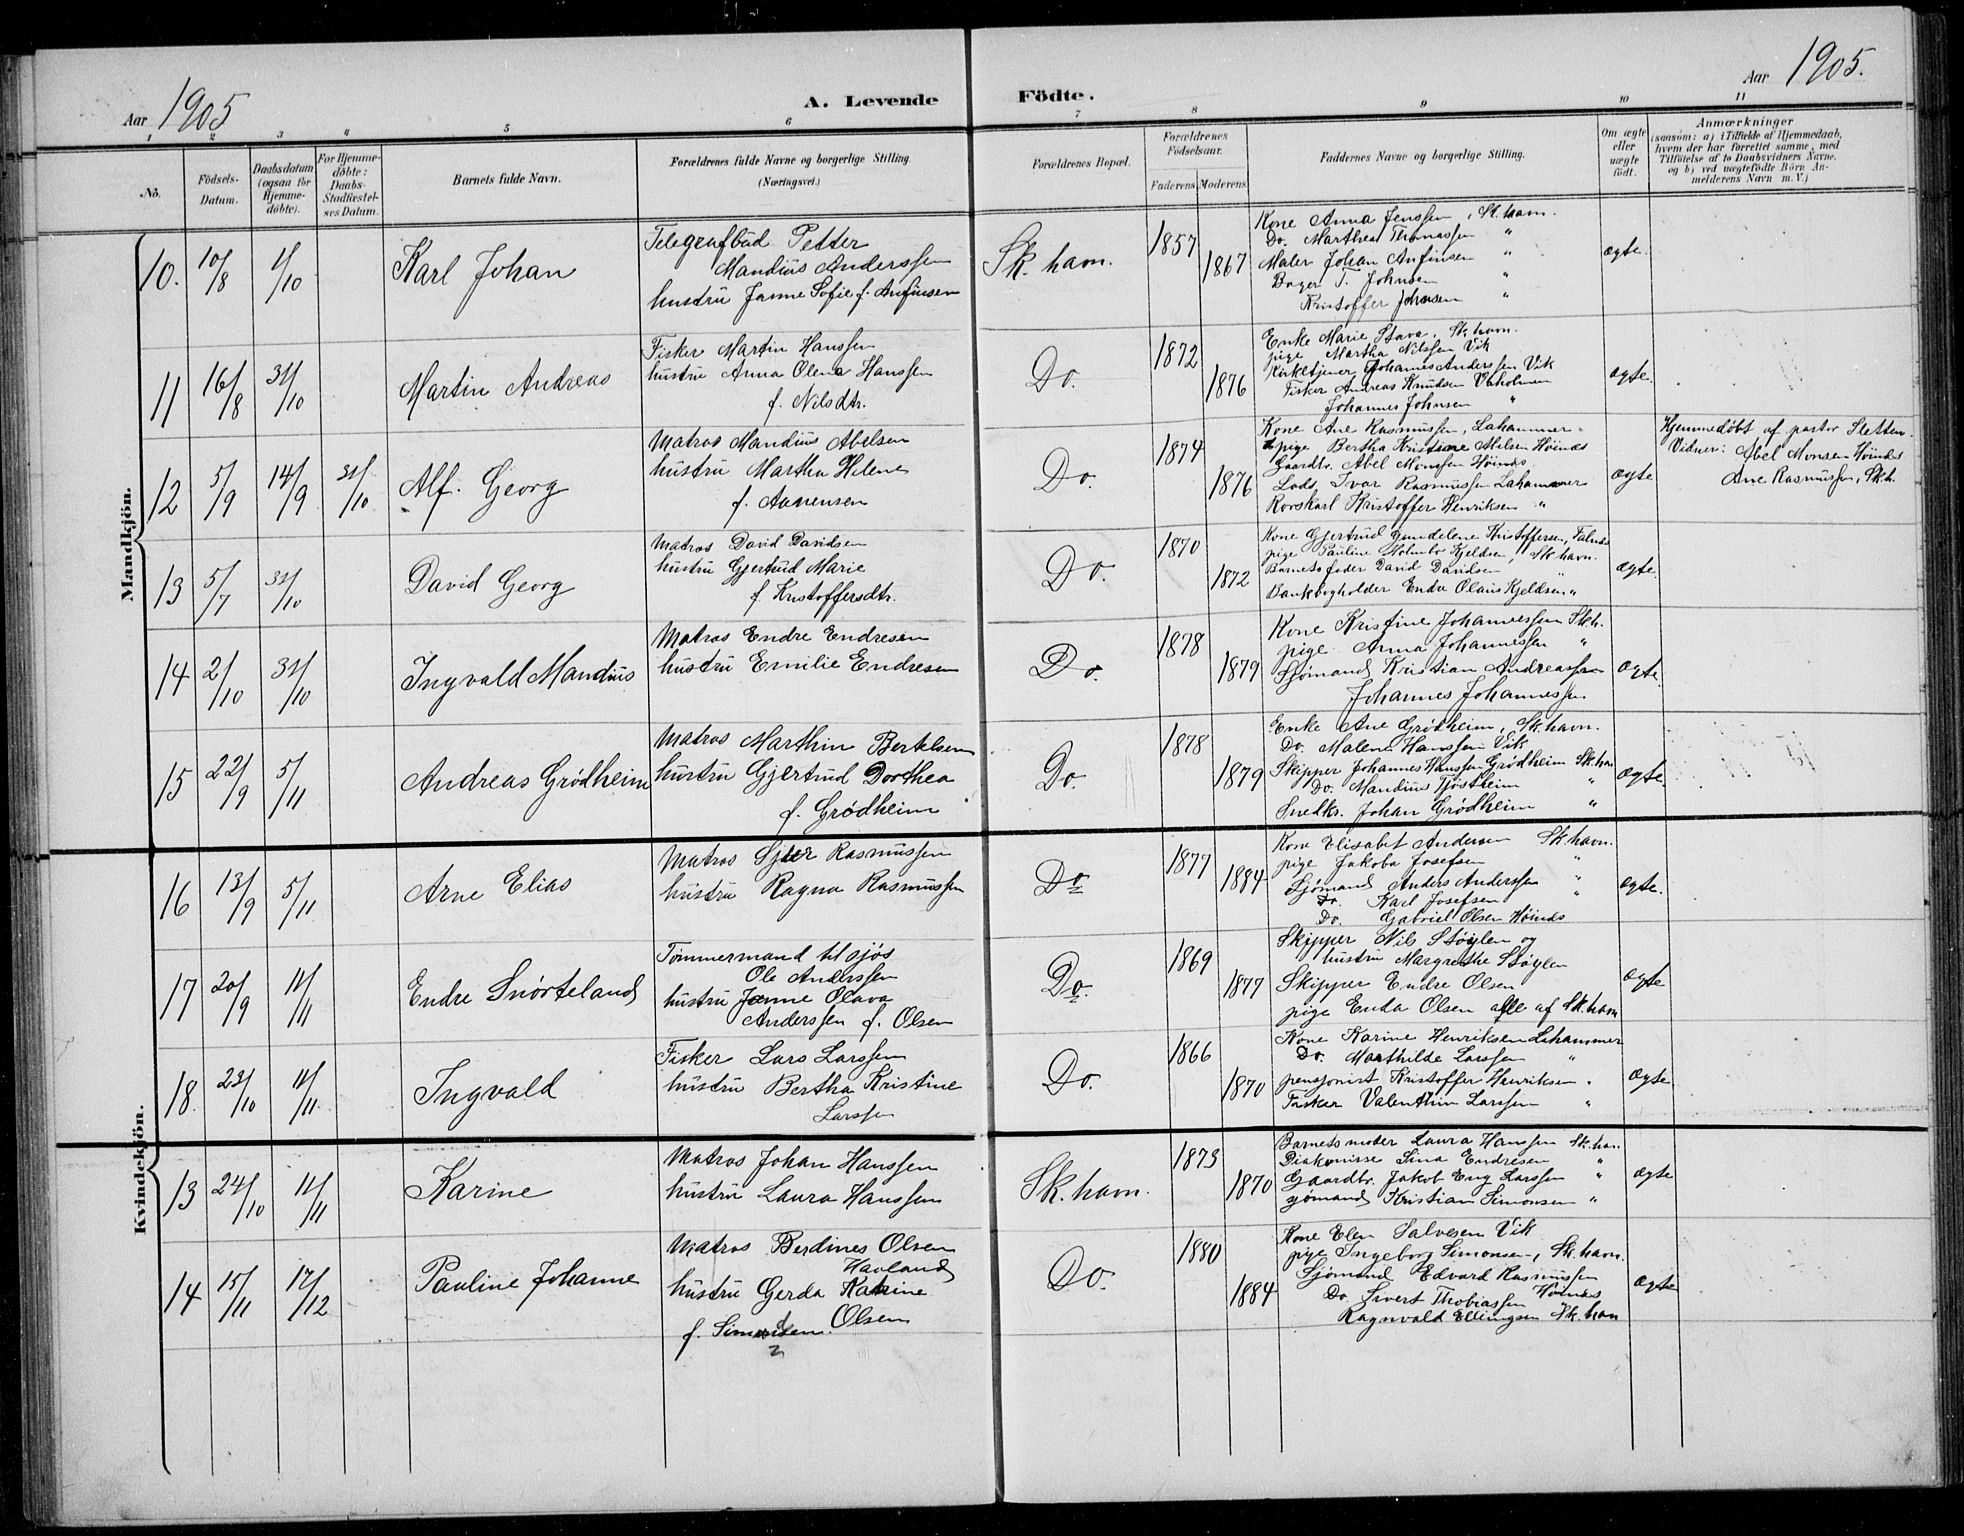 Aar 1905
A. Levende Födte.
Aar 1905.
1 2 3 4 5 6 7 8 9 10 11
No.
Födsels-Datum.
Daabsdatum (ogsaa for Hjemme-döbte).
For Hjemme-döbte: Daabs-Stadfæstel-ses Datum.
Barnets fulde Navn.
Forældrenes fulde Navne og borgerlige Stilling. (Næringsvei.)
Forældrenes Bopæl.
Forældrenes Födselsaar.
Faderens. Moderens.
Faddernes Navne og borgerlige Stilling.
Om ægte eller uægte födt.
Anmærkninger
(saasom: a) i Tilfælde af Hjemmedaab,
hvem der har forrettet samme, med
Tilföielse af to Daabsvidners Navne,
og b) ved uægtefödte Börn An-
melderens Navn m. V.)
Mandkjön.
10. 10/8 1/10 Karl Johan
Telegrafbud Petter
Mandius Anderssen
hustru Janne Sofie f. Anfinsen
Sk. havn. 1857 1867
Kone Anna Jenssen, Sk. havn.
Do. Marthea Thomassen "
Maler Johan Anfinsen "
Bager T. Johnsen "
Kristoffer Johnsen "
ægte.
11 16/8 31/10 Martin Andreas
Fisker Martin Hanssen
hustru Anna Olena Hanssen
f. Nilsdtr.
Do. 1872 1876
Enke Marie Stava, Sk. havn.
pige Martha Nilssen Vik
Kirketjener Johannes Anderssen Vik
Fisker Andreas Knudsen
Johannes Johnsen "
ægte.
12 5/9 14/9 31/10 Alf. Georg
Matros Mandius Abelsen
hustru Martha Helene
f.
Do. 1874 1876
Kone Ane Rasmussen, Lahammer
pige Bertha Kristiane Abelsen Höinæs
Gaardbr. Abel Monssen Höinæs
Lods Ivar Rasmussen Lahammer
Rorskarl Kristoffer Henriksen "
ægte
Hjemmedøbt af pastor Sletten.
Vidner: Abel Monsen Höinæs
Ane Rasmussen, Sk.h.
13 5/7 31/10 David Georg
Matros David Davidsen
hustru Gjertrud Marie
f. Kristoffersdtr.
Do. 1870 1872
Kone Gjertrud Gundelene Kristoffersen, Falnæs
pige Pauline Holmbo Kjeldsen, Sk. havn.
Barnets fader David Davidsen "
Bankbogholder Endre Olaus Kjeldsen "
ægte.
14 2/10 31/10 Ingvald Mandius
Matros Endre Endresen
hustru Emilie Endresen
Do. 1878 1879
Kone Kristine Johannessen Sk.h.
pige Anna Johannessen "
Sjømand Kristian Andreassen
Johannes Johannessen
ægte.
15 22/9 5/11 Andreas Grødheim
Matros Marthin Bertelsen
hustru Gjertrud Dorthea
f. Grødheim
Do. 1878 1879
Enke Ane Grødheim, Sk. havn.
Do. Malene Hanssen Vik
Skipper Johannes Hanssen Grødheim Sk. havn
Do. Mandius Tjøstheim "
Snedkr. Johan Grødheim "
ægte.
16 13/9 5/11 Arne Elias
Matros Sjur Rasmussen
hustru Ragna Rasmussen
Do 1877 1884
Kone Elisabet Andersen Sk. havn.
pige Jakoba Josefsen "
Sjømand Anders Anderssen "
Do. Karl Josefsen "
Do. Gabriel Olsen Höinæs
ægte.
17 20/9 11/11 Endre Snørteland
Tømmermand til sjøs
Ole Anderssen
hustru Janne Olava
Anderssen f. Olsen
Do. 1869 1877
Skipper Nils Støylen og
hustru Margrethe Støylen
Skipper Endre Olsen
pige Enda Olsen alle af Sk. havn
ægte
18. 23/10 11/11 Ingvald
Fisker Lars Larssen
hustru Bertha Kristine
Larssen
Do. 1866 1870
Kone Karine Henriksen Lahammer
Do. Marthilde Larssen "
pensjonist Kristoffer Henriksen "
Fisker Valenthin Larssen "
ægte
Kvindekjön.
13 24/10 11/11 Karine
Matros Johan Hanssen
hustru Laura Hanssen
Sk. havn. 1873 1870
Barnets moder Laura Hanssen Sk. havn
Diakonisse Sina Endresen "
Gaardbr. Jakob Eng Larssen "
sjømand Kristian Simonsen "
ægte
14 15/11 17/12 Pauline Johanne
Matros Berdines Olsen
Havland
hustru Gerda Katrine
Olsen
f. Simonsen.
Do. 1880 1884
Kone Elen Salvesen Vik
pige Ingeborg Simonsen, Sk. havn.
Sjømand Edvard Rasmussen
Do. Sivert Thobiassen Höinæs
Ragnvald Ellingsen Sk. havn
ægte